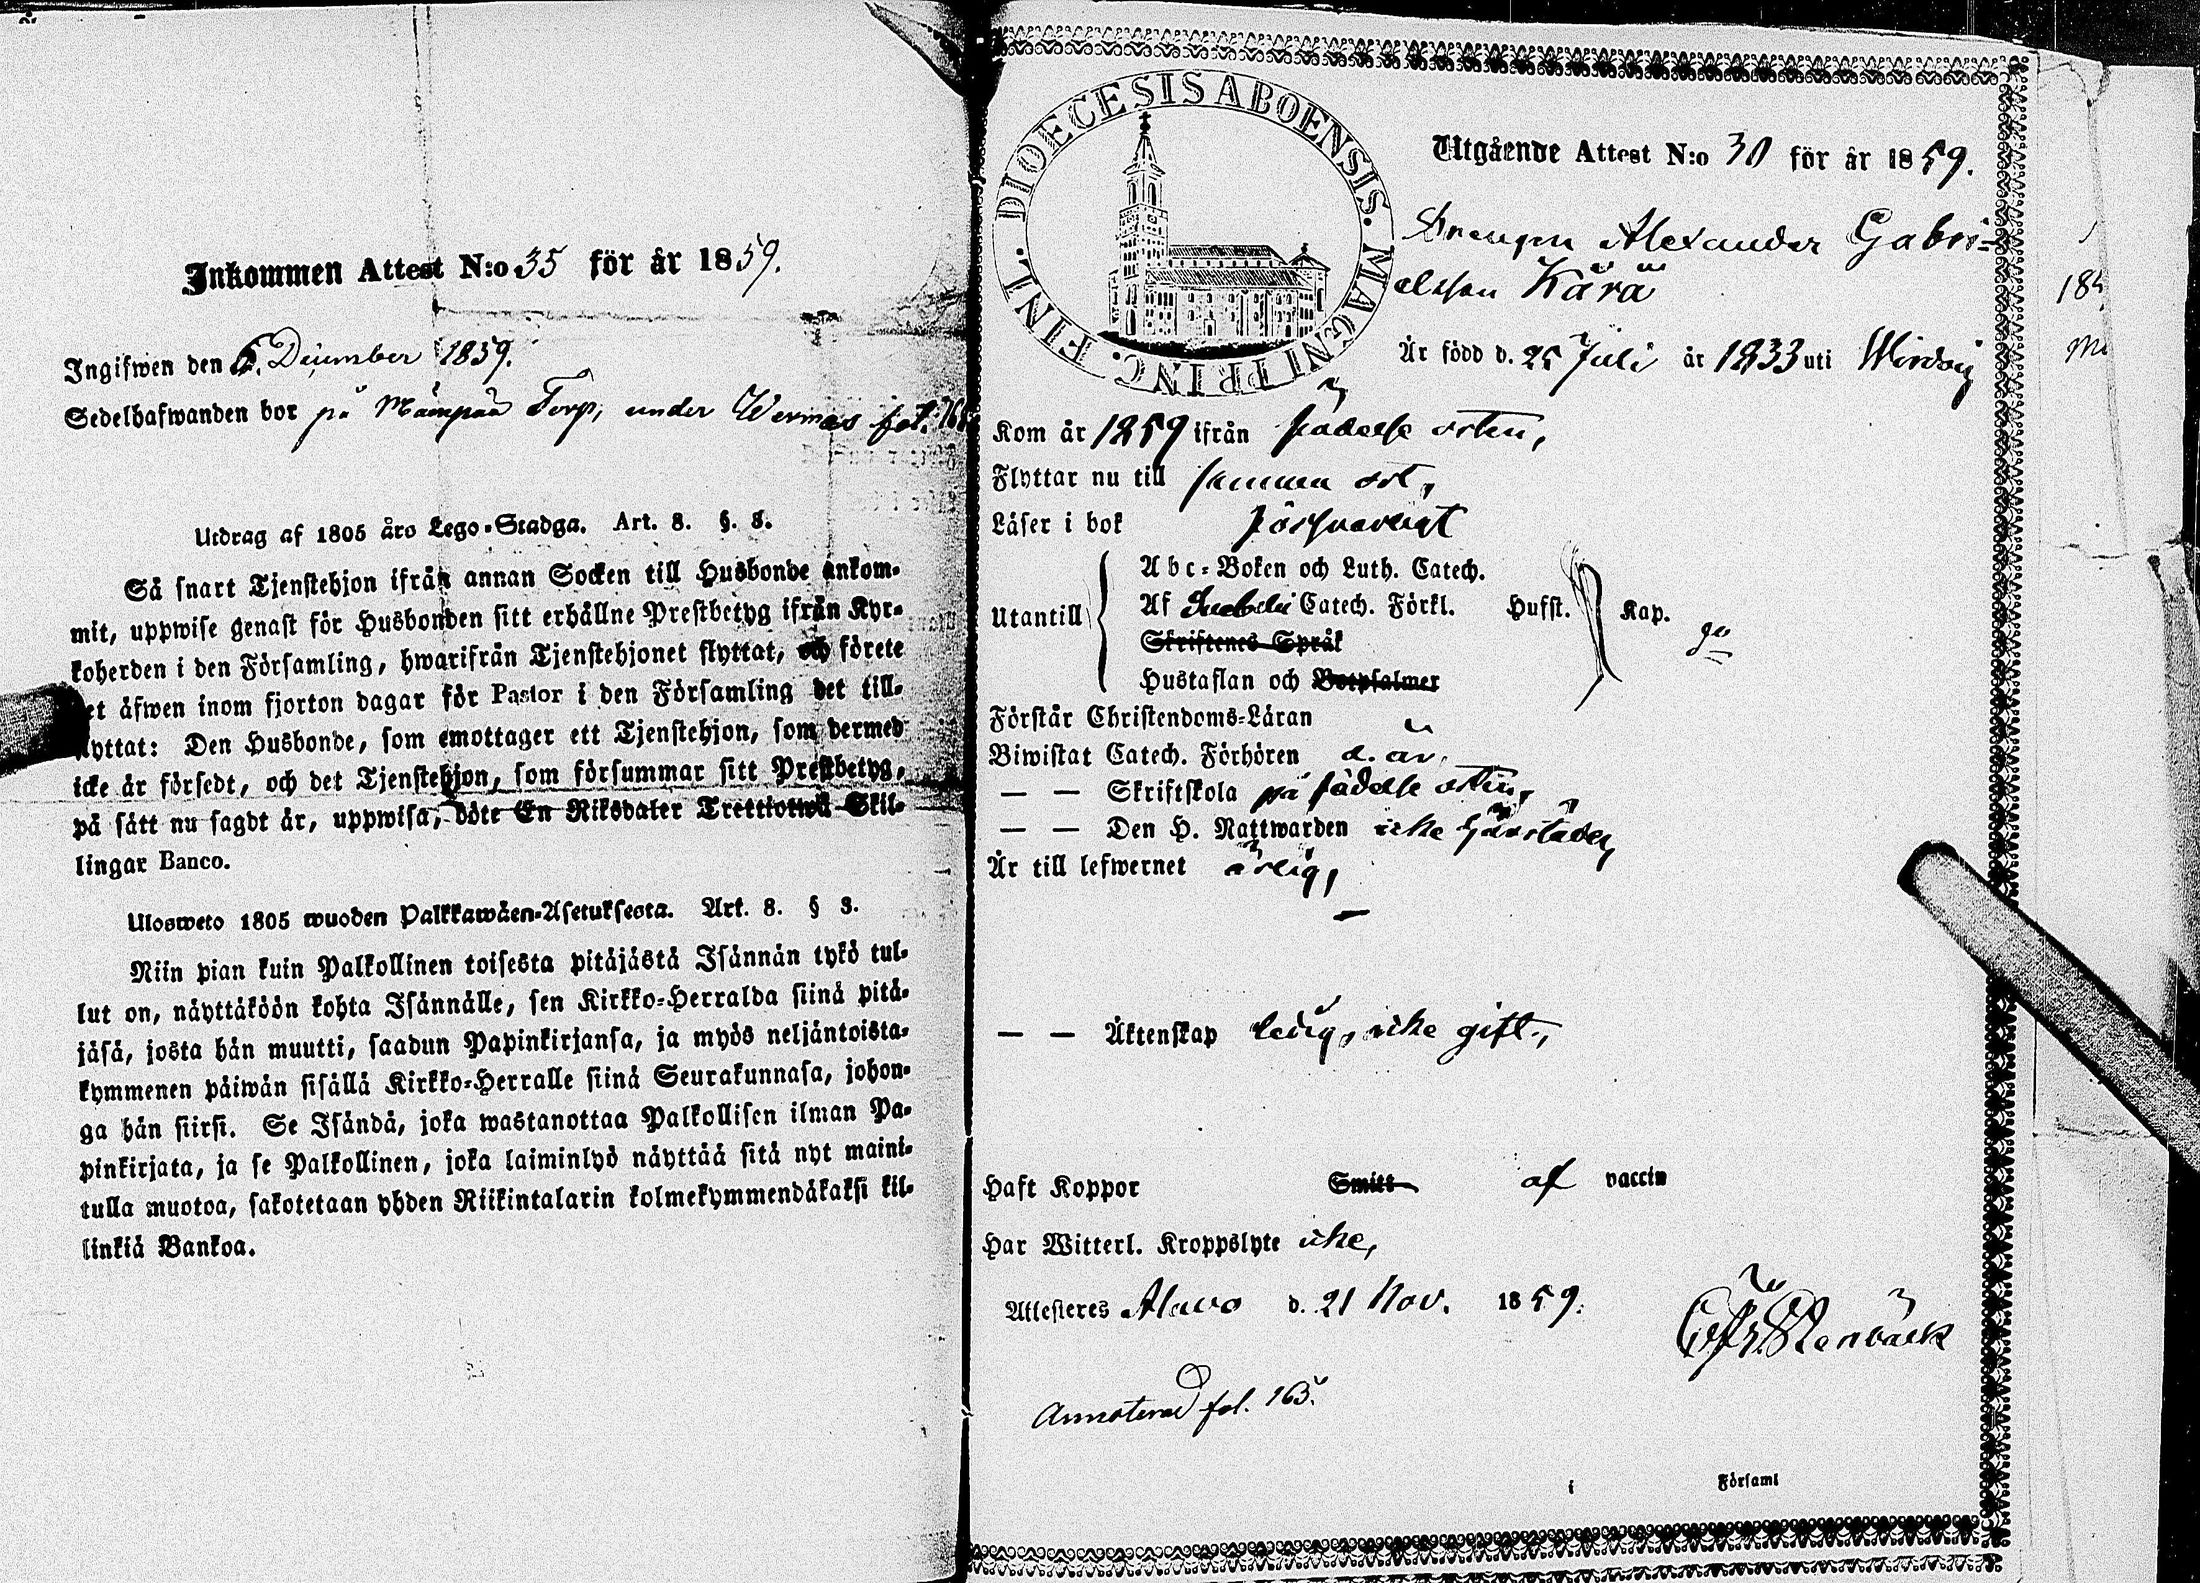 Inkommen Attest N:o 35 för år 1859.
Ingifwen den 6. December 1859.
Sedelhafwanden bor på Mämpää Torp, under Wermas fol. 166
Utdrag af 1805 års Lego-Stadga. Art. 8. §. 8.
Så snart Tjenstehjon ifrån annan Socken till Husbonde ankom-
mit, uppwise genast för Husbonden sitt erhållne Prestbetyg ifrån Kyr-
koherden i den Församling, hwarifrån Tjenstehjonet flyttat, och förete
det äfwen inom fjorton dagar för Pastor i den Församling det till-
flyttat: Den Husbonde, som emottager ett Tjenstehjon, som dermed
icke är försedt, och det Tjenstehjon, som försummar sitt Prestbetyg,
på sätt nu sagdt är, uppwisa, böte En Riksdaler Trettiotwå Skil-
lingar Banco.
Ulosweto 1805 wuoden Palkkawäen-Asetuksesta. Art. 8. § 8.
Niin pian kuin Palkollinen toisesta pitäjästä Isännän tykö tul-
lut on, näyttäköön kohta Isännälle, sen Kirkko-Herralda siinä pitä-
jäsä, josta hän muutti, saadun Papinkirjansa, ja myös neljäntoista-
kymmenen päiwän sisällä Kirkko-Herralle siinä Seurakunnasa, johon-
ga hän siirsi. Se Isändä, joka wastanottaa Palkollisen ilman Pa-
pinkirjata, ja se Palkollinen, joka laiminlyö näyttää sitä nyt maini-
tulla muotoa, sakotetaan yhden Riikintalarin kolmekymmendäkaksi kil-
linkiä Bankoa.
DIOECESIS ABOENSIS. MAGNI PRINC. FINL.
Utgående Attest N:o 30 för år 1859.
Drengen Alexander Gabri-
elsson Kärä
Är född d. 25 Juli år 1833 uti Wirdois
Kom år 1859 ifrån födelse orten,
Flyttar nu till samma ort,
Läser i bok försvarligt
Utantill
Abc-Boken och Luth. Catech.
Af Svebelii Catech. Förkl. Hufst. Kap.
Skriftenes Språk
Hustaflan och Botpsalmer
Förstår Christendoms-Läran
Biwistat Catech. Förhören d. år.
— — Skriftskola på födelse orten,
— — Den H. Nattwarden icke härstädes,
Är till lefwernet ärlig,
— — Äktenskap ledig, icke gift.,
Haft Koppor Smitt af vaccin
Har Witterl. Kroppslyte icke,
Attesteres Alavo d. 21 Nov. 1859.
Stenbäck
Annoterad fol. 163.
i Församl